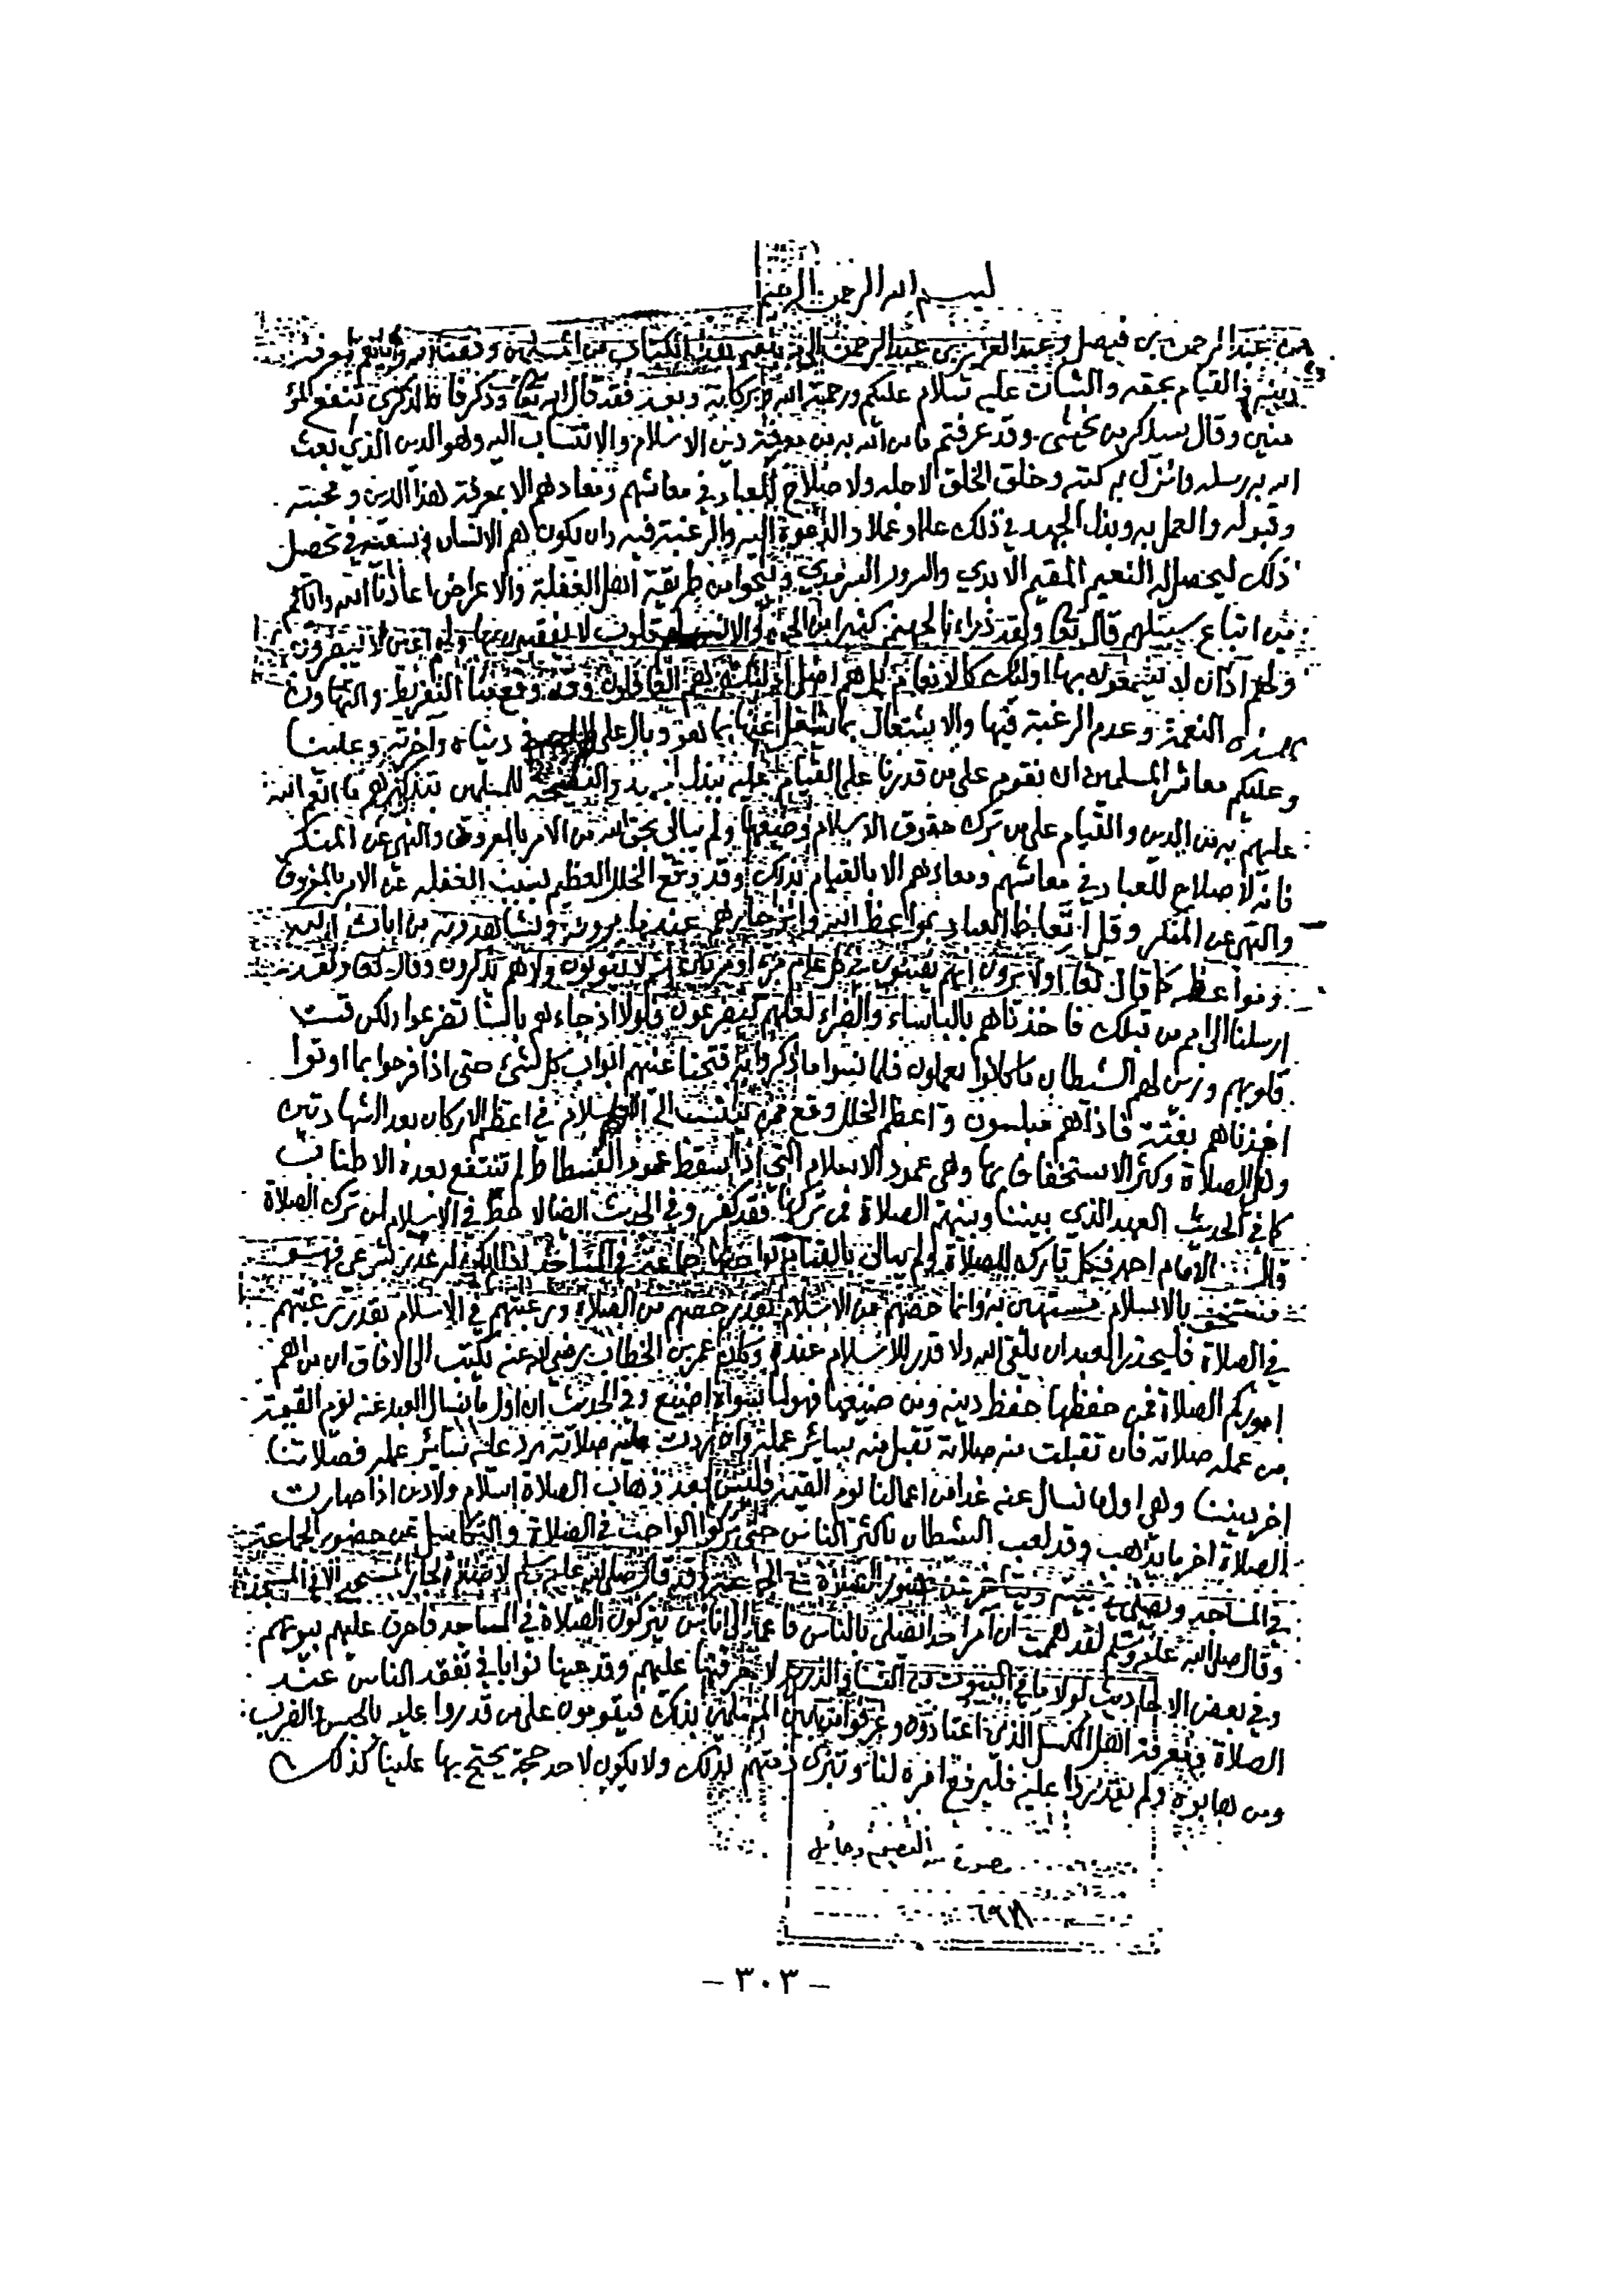 بسم الله الرحمن الرحيم
من عبد الرحمن بن فيصل وعبد العزيز بن عبد الرحمن الى من يبلغه هذا الكتاب من المسلمين وفقنا الله واياهم لمعرفة
دينه والقيام بحقه والثبات عليه سلام عليكم ورحمة الله وبركاته وبعد فقد قال الله تعالى وذكر فان الذكرى تنفع المؤ
منين وقال سيذكر من يخشى وقد عرفتم ما من الله به من معرفة دين الاسلام والانتساب اليه وهو الدين الذي بعث
الله به رسله وانزل به كتبه وخلق الخلق لاجله ولا صلاح للعباد في معاشهم ومعادهم الا بمعرفة هذا الدين ومحبته
وقبوله والعمل به وبذل الجهد في ذلك علما وعملا والدعوة اليه والرغبة فيه وان يكون هم الانسان وسعيه في تحصيل
ذلك ليحصل له النعيم المقيم الابدي والسرور السرمدي وينجوا من طريقة اهل الغفلة والاعراض اعاذنا الله واياكم
من اتباع سبيلهم قال تعالى ولقد ذرأنا لجهنم كثيرا من الجن والانس لهم قلوب لا يفقهون بها ولهم اعين لا يبصرون
ولهم آذان لا يسمعون بها اولئك كالانعام بل هم اضل اولئك هم الغافلون وقد وقع منا التفريط والتهاون
بهذه النعمة وعدم الرغبة فيها والاشتغال بما شغل عنها بما هو وبال على في دنياه وآخرته وعلينا
وعليكم معاشر المسلمين ان نقوم على من قدرنا على القيام عليه ببذل والنصيحة للمسلمين بتذكيرهم ما انعم الله
عليهم به من الدين والقيام على من ترك حقوق الاسلام وضيعها ولم يبالي بحق الله من الامر بالمعروف والنهي عن المنكر
فانه لا صلاح للعباد في معاشهم ومعادهم الا بالقيام بذلك وقد وقع الخلل العظيم بسبب الغفلة عن الامر بالمعروف
والنهي عن المنكر وقل اتعاظ العباد بمواعظ الله وانزجارهم عند ما يرونه ويشاهدونه من آيات الله
ومواعظه كما قال تعالى اولا يرون انهم يفتنون في كل عام مرة او مرتين ثم لا يتوبون ولا هم يذكرون وقال تعالى ولقد
ارسلنا الى امم من قبلك فاخذناهم بالبأساء والضراء لعلهم يتضرعون فلولا اذ جاءهم بأسنا تضرعوا ولكن قست
قلوبهم وزين لهم الشيطان ما كانوا يعملون فلما نسوا ما ذكروا به فتحنا عليهم ابواب كل شيء حتى اذا فرحوا بما اوتوا
اخذناهم بغتة فاذا هم مبلسون واعظم الخلل وقع ممن ينتسب الى الاسلام في اعظم الاركان بعد الشهادتين
وهي الصلاة وكثر الاستخفاف بها وهي عمود الاسلام التي اذا سقط عمود الفسطاط لم تنتفع بعده الاطناب
كما في الحديث العهد الذي بيننا وبينهم الصلاة فمن تركها فقد كفر وفي الحديث ايضا لا حظ في الاسلام لمن ترك الصلاة
قال الامام احمد فكل تارك للصلاة ولم يبالي بالقيام جماعة في المساجد عذر شرعي فهو
مستخف بالاسلام مستهين به وانما حضهم من الاسلام بقدر حضهم من الصلاة ورغبتهم في الاسلام بقدر رغبتهم
في الصلاة فليحذر العبد ان يلقى الله ولا قدر للاسلام عنده وكان عمر بن الخطاب رضي الله عنه يكتب الى الافاق ان من اهم
اموركم الصلاة فمن حفظها حفظ دينه ومن ضيعها فهو لما سواه اضيع وفي الحديث ان اول ما يسال العبد عنه يوم القيمة
من عمله صلاته فان تقبلت منه صلاته تقبل منه سائر عمله وان ردت عليه صلاته رد عليه سائر عمله فصلاتنا
اخر ديننا وهي اول ما نسال عنه غدا من اعمالنا يوم القيمة فليس بعد ذهاب الصلاة اسلام ولا دين اذا صارت
الصلاة اخر ما يذهب وقد لعب الشيطان باكثر الناس حتى تركوا الواجب في الصلاة والتكاسل عن حضور الجماعة
في المساجد ويصلي في بيته حضور الصلاة مع الجماعة وقد قال صلى الله عليه وسلم لا صلاة لجار المسجد الا في المسجد
وقال صلى الله عليه وسلم لقد هممت ان آمر احدا يصلي بالناس فاعمد الى اناس يتركون الصلاة في المساجد فاحرق عليهم بيوتهم
وفي بعض الاحاديث لولا ما في البيوت من النساء والذرية لاحرقتها عليهم وقد عينا نوابا في تفقد الناس عند
الصلاة ومعرفة اهل الكسل الذين اعتادوه وعرفوا من بين المسلمين بذلك فيقومون على من قدروا عليه بالحبس والضرب
ومن هابوه ولم يقدروا عليه فليرفع امره لنا وتبرى ذمتهم بذلك ولا يكون لاحد حجة يحتج بها علينا كذلك
مصورة من القصيم وحايل
- ٣٠٣ -